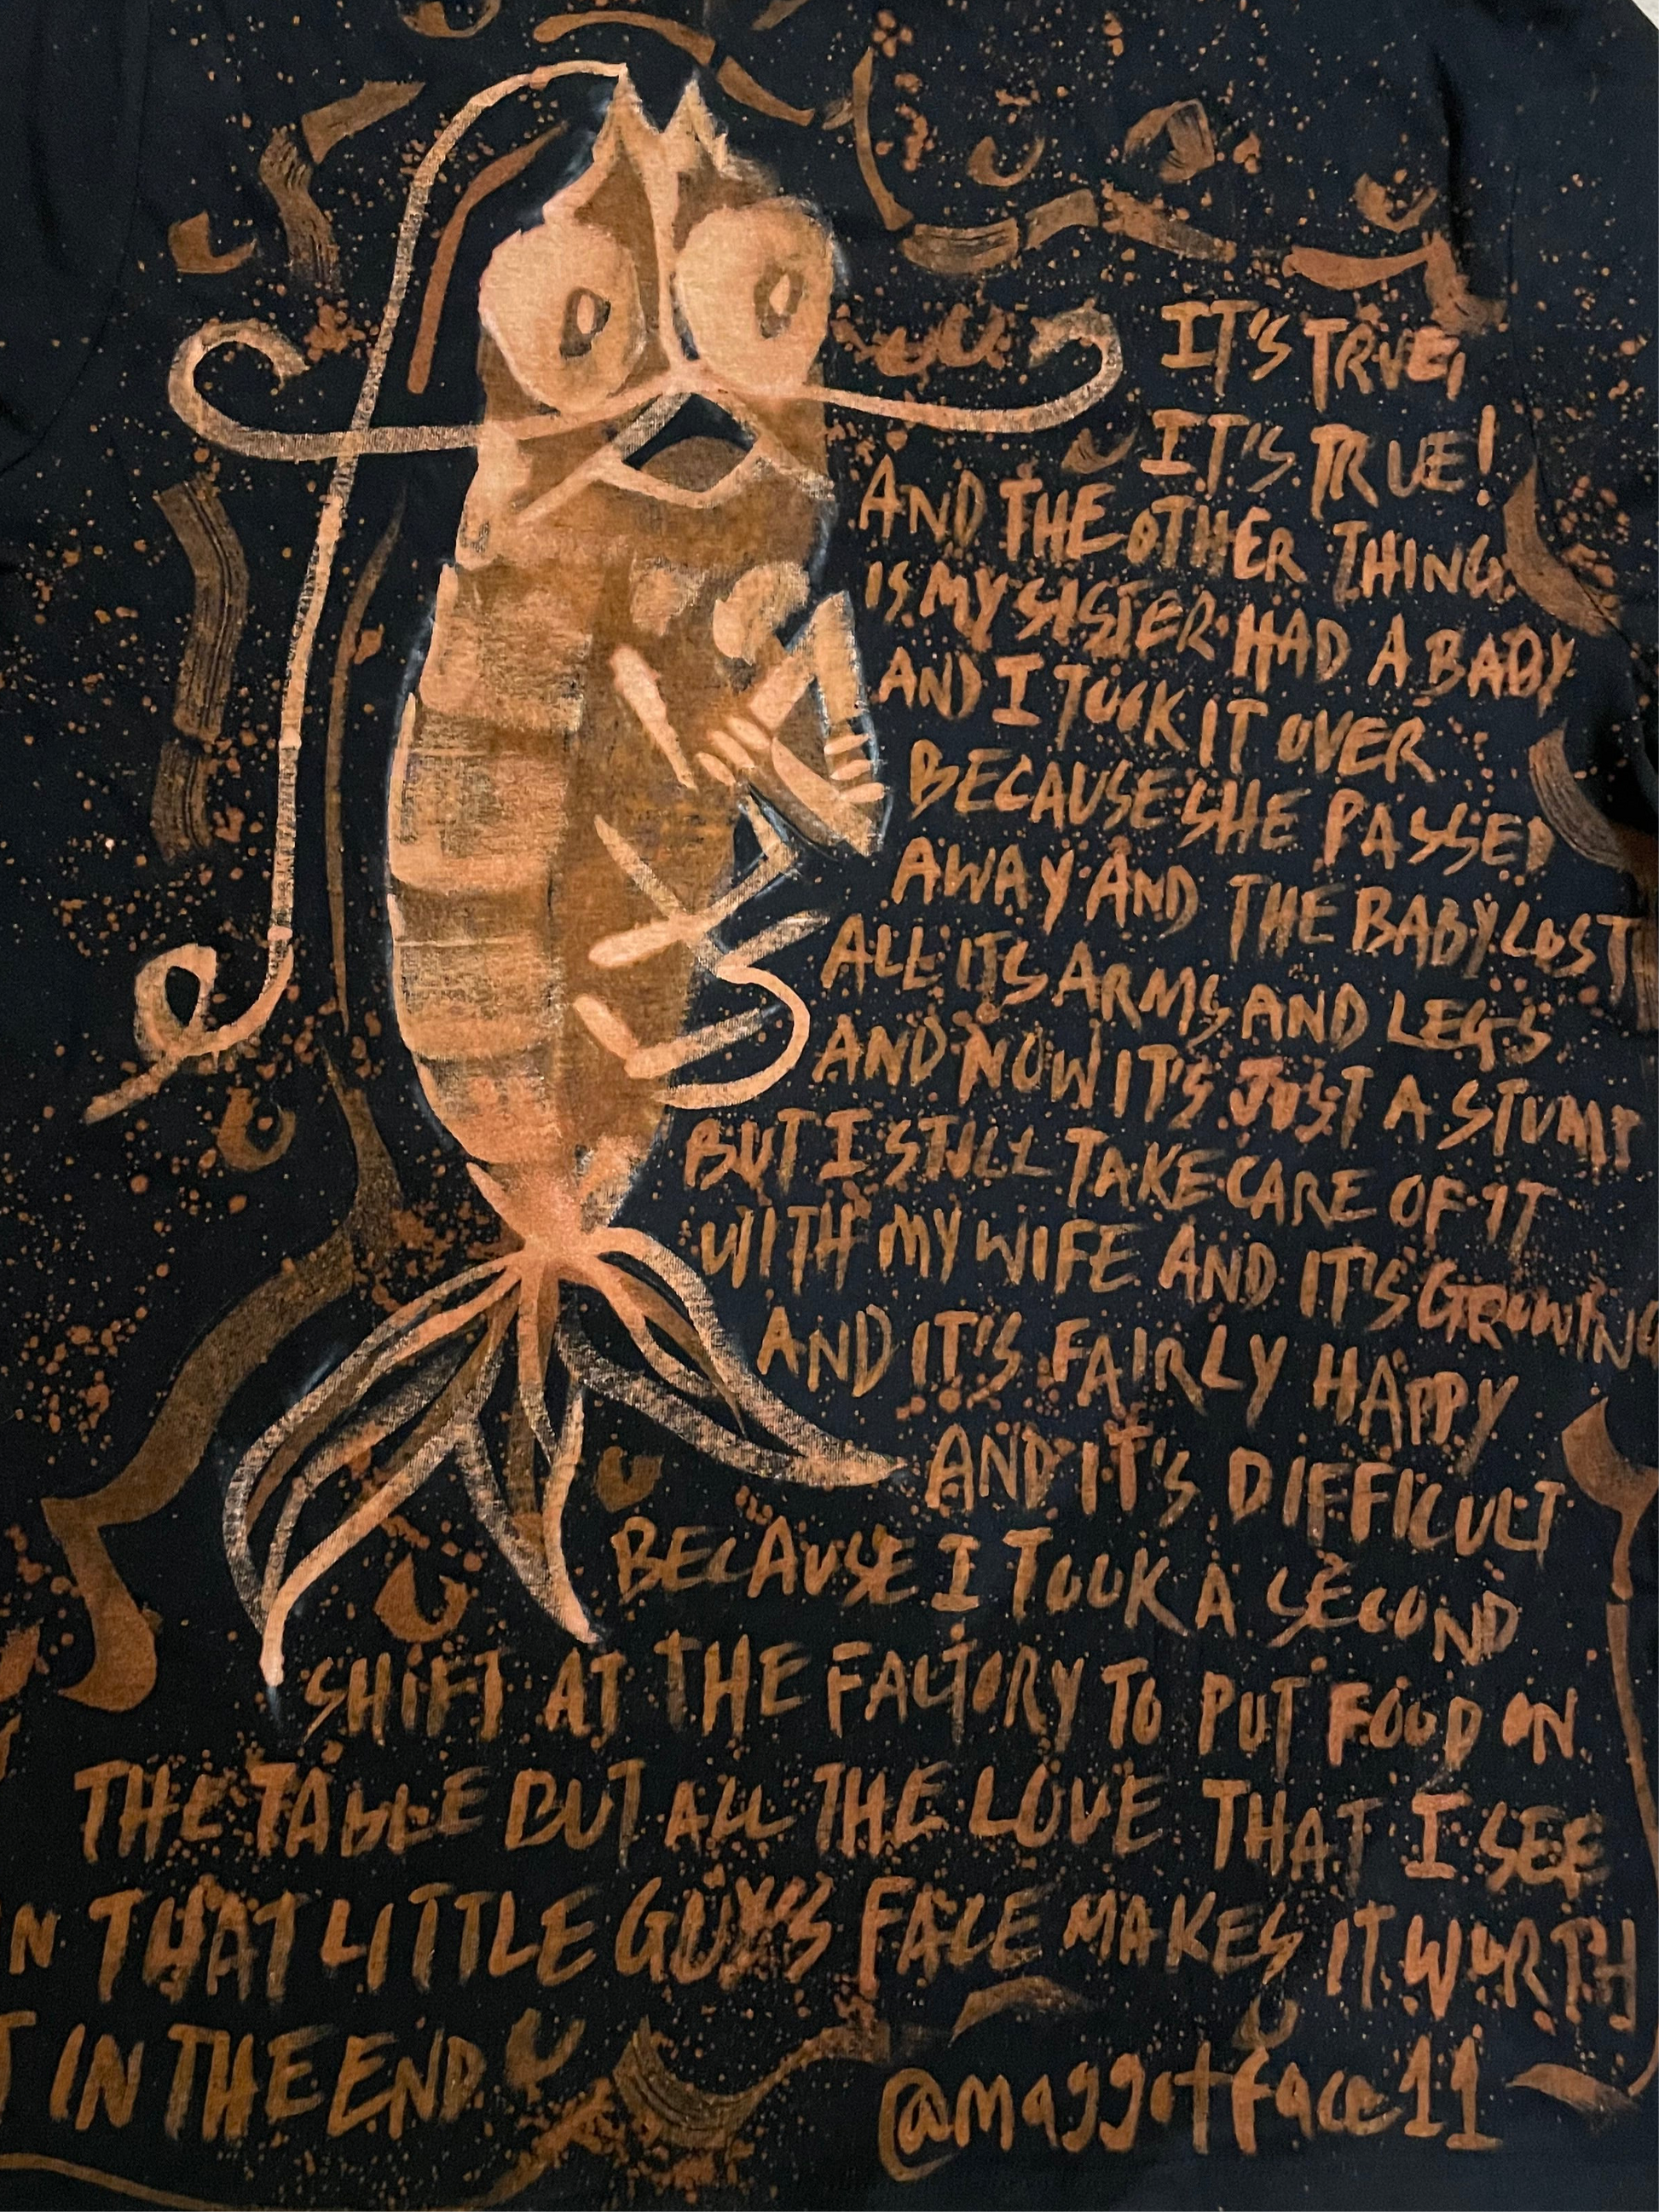 IT'S TRUE,
IT'S TRUE!
AND THE OTHER THING
IS MY SISTER HAD A BABY
AND I TOOK IT OVER
BECAUSE SHE PASSED
AWAY AND THE BABY LOST
ALL ITS ARMS AND LEGS
AND NOW IT'S JUST A STUMP
BUT I STILL TAKE CARE OF IT
WITH MY WIFE AND IT'S GROWING
AND IT'S FAIRLY HAPPY
AND IT'S DIFFICULT
BECAUSE I TOOK A SECOND
SHIFT AT THE FACTORY TO PUT FOOD ON
THE TABLE BUT ALL THE LOVE THAT I SEE
N THAT LITTLE GUYS FACE MAKES IT WORTH
T IN THE END
@maggotface11